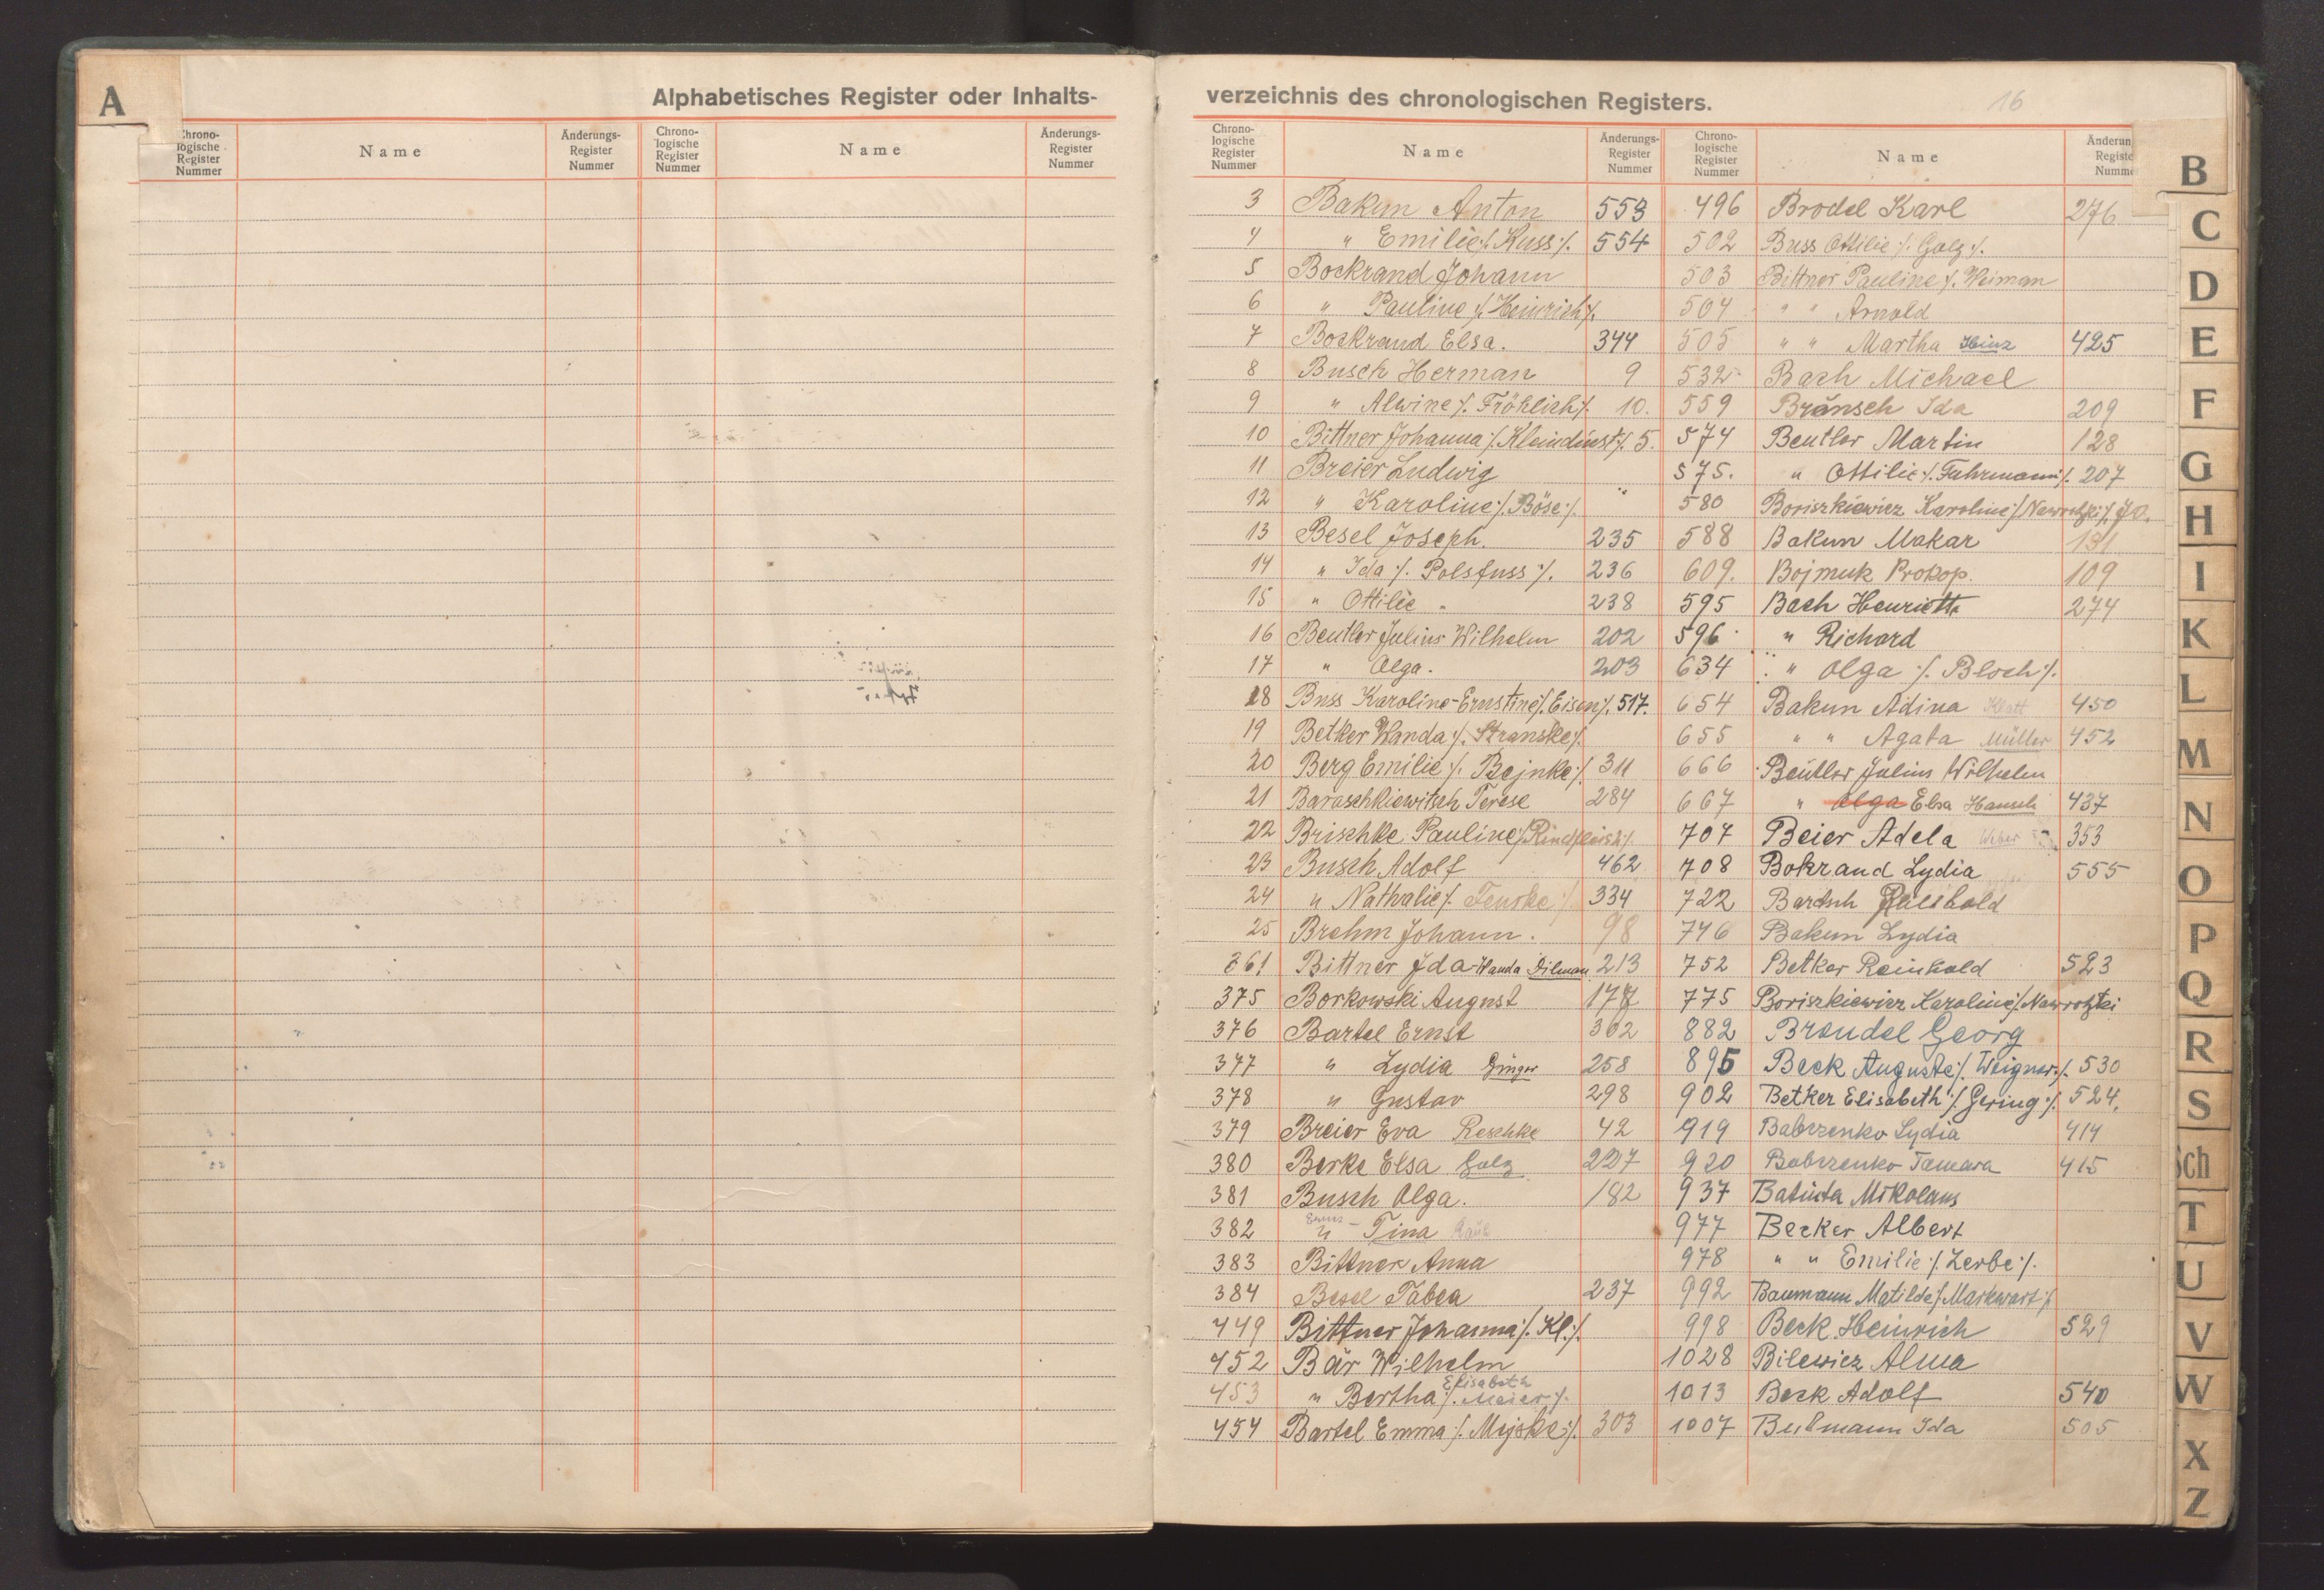 A
Alphabetisches Register oder Inhalts-
Chrono-
logische
Register
Nummer
Name
Änderungs-
Register
Nummer
Chrono-
logische
Register
Nummer
Name
Änderungs-
Register
Nummer
verzeichnis des chronologischen Registers.
16
Chrono-
logische
Register
Nummer
Name
Änderungs-
Register
Nummer
Chrono-
logische
Register
Nummer
Name
Änderun
Registe
Numme
3 Bakun Anton 553
4 " Emilie /. Kuss /. 554
5 Bockrand Johann
6 " Pauline /. Heinrich /.
7 Bockrand Elsa. 344
8 Busch Herman 9
9 " Alwine /. Fröhlich /. 10.
10 Bittner Johanna /. Kleindinst /. 5.
11 Breier Ludwig
12 " Karoline /. Böse /. "
13 Besel Joseph. 235
14 " Ida /. Polsfuss /. 236
15 " Ottilie " 238
16 Beutler Julius Wilhelm 202
17 " Olga. 203
18 Buss Karoline-Ernstine /. Eisen /. 517.
19 Betker Wanda /. Stranske /.
20 Berg Emilie /. Bejnke /. 311
21 Baraschkiewitsch Terese 284
22 Brischke Pauline /. Rindfleisch /.
23 Busch Adolf 462
24 " Nathalie /. Fenske /. 334
25 Brehm Johann. 98
361 Bittner Ida-Wanda Dilman 213
375 Borkowski August 177
376 Bartel Ernst 302
377 " Lydia Ginger 258
378 " Gustav 298
379 Breier Eva Reschke 42
380 Berke Elsa Golz 227
381 Busch Olga. 182
382 " Tina
383 Bittner Anna
384 Besel Tabea 237
449 Bittner Johanna /. Kl. /.
452 Bär Wilhelm
Elisabeth
453 " Bertha /. Meier /.
454 Bartel Emma /. Mijske /. 303
496 Brodel Karl 276
502 Buss Ottilie /. Golz /.
503 Bittner Pauline /. Heiman
504 " " Arnold
505 " " Martha Heinz 425
532 Bach Michael
559 Bränsch Ida 209
574 Beutler Martin 128
575. " Ottilie /. Fuhrmann /. 207
580 Boriszkiewicz Karoline /. Nawrotzki /. 70.
588 Bakun Makar 131
609. Bojmuk Prokop. 109
595 Bach Henriette 274
596 " Richard
634 " Olga /. Bloch /.
654 Bakun Adina Klatt 450
655 " " Agata Müller 452
666 Beutler Julius Wilhelm
667 " Olga Elsa Hansch 437
707 Beier Adela Weber 353
708 Bokrand Lydia 555
722 Bartsch Reinhold
746 Bakun Lydia
752 Betker Reinhold 523
775 Boriszkiewicz Karoline /. Nawrotzki
882 Brendel Georg
895 Beck Auguste /. Weigner /. 530
902 Betker Elisabeth /. Gering /. 524.
919 Babrzenko Lydia 414
920 Babrzenko Tamara 415
937 Batiuta Mikolaus
977 Becker Albert
978 " " Emilie /. Zerbe /.
992 Baumann Matilde /. Markwart /.
998 Beck Heinrich 529
1028 Bilewicz Alma
1013 Beck Adolf 540
1007 Bulmann Ida 505
B
C
D
E
F
G
H
I
K
L
M
N
O
P
Q
R
S
Sch
T
U
V
W
X
Z